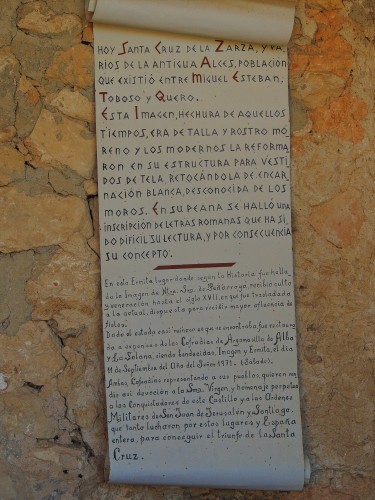 HOY SANTA CRUZ DE LA ZARZA, Y VA,
RIOS DE LA ANTIGUA ALCES, POBLACIÓN
QUE EXISTIÓ ENTRE MIGUEL ESTEBAN,
TOBOSO Y QUERO.
ESTA IMAGEN, HECHURA DE AQUELLOS
TIEMPOS, ERA DE TALLA Y ROSTRO MO
RENO Y LOS MODERNOS LA REFORMA
RON EN SU ESTRUCTURA PARA VESTI
DOS DE TELA, RETOCÁNDOLA DE ENCAR
NACIÓN BLANCA, DESCONOCIDA DE LOS
MOROS. EN SU PEANA SE HALLÓ UNA
INSCRIPCIÓN DE LETRAS ROMANAS QUE HA SI
DO DIFÍCIL SU LECTURA, Y POR CONSECUENCIA
SU CONCEPTO.
En esta Ermita, lugar donde según la Historia fue halla
da la Imagen de Ntra. Sra. de Peñarroya, recibió culto
y veneración hasta el siglo XVII, en que fue trasladada
a la actual, dispuesta para recibir mayor afluencia de
fieles.
Dado el estado casi ruinoso en que se encontraba fue restaura
da a expensas de las Cofradías de Argamasilla de Alba
y La Solana, siendo bendecidas, Imagen y Ermita, el día
11 de Septiembre del Año del Señor 1971,
Ambas Cofradías representando a sus pueblos, quieren con
ello así devoción a la Sma. Virgen, y homenaje perpetuo
a los Conquistadores de este Castillo y a las Ordenes
Militares de San Juan de Jerusalén y Santiago,
que tanto lucharon por estos lugares y España
entera, para conseguir el triunfo de la Santa
Cruz.